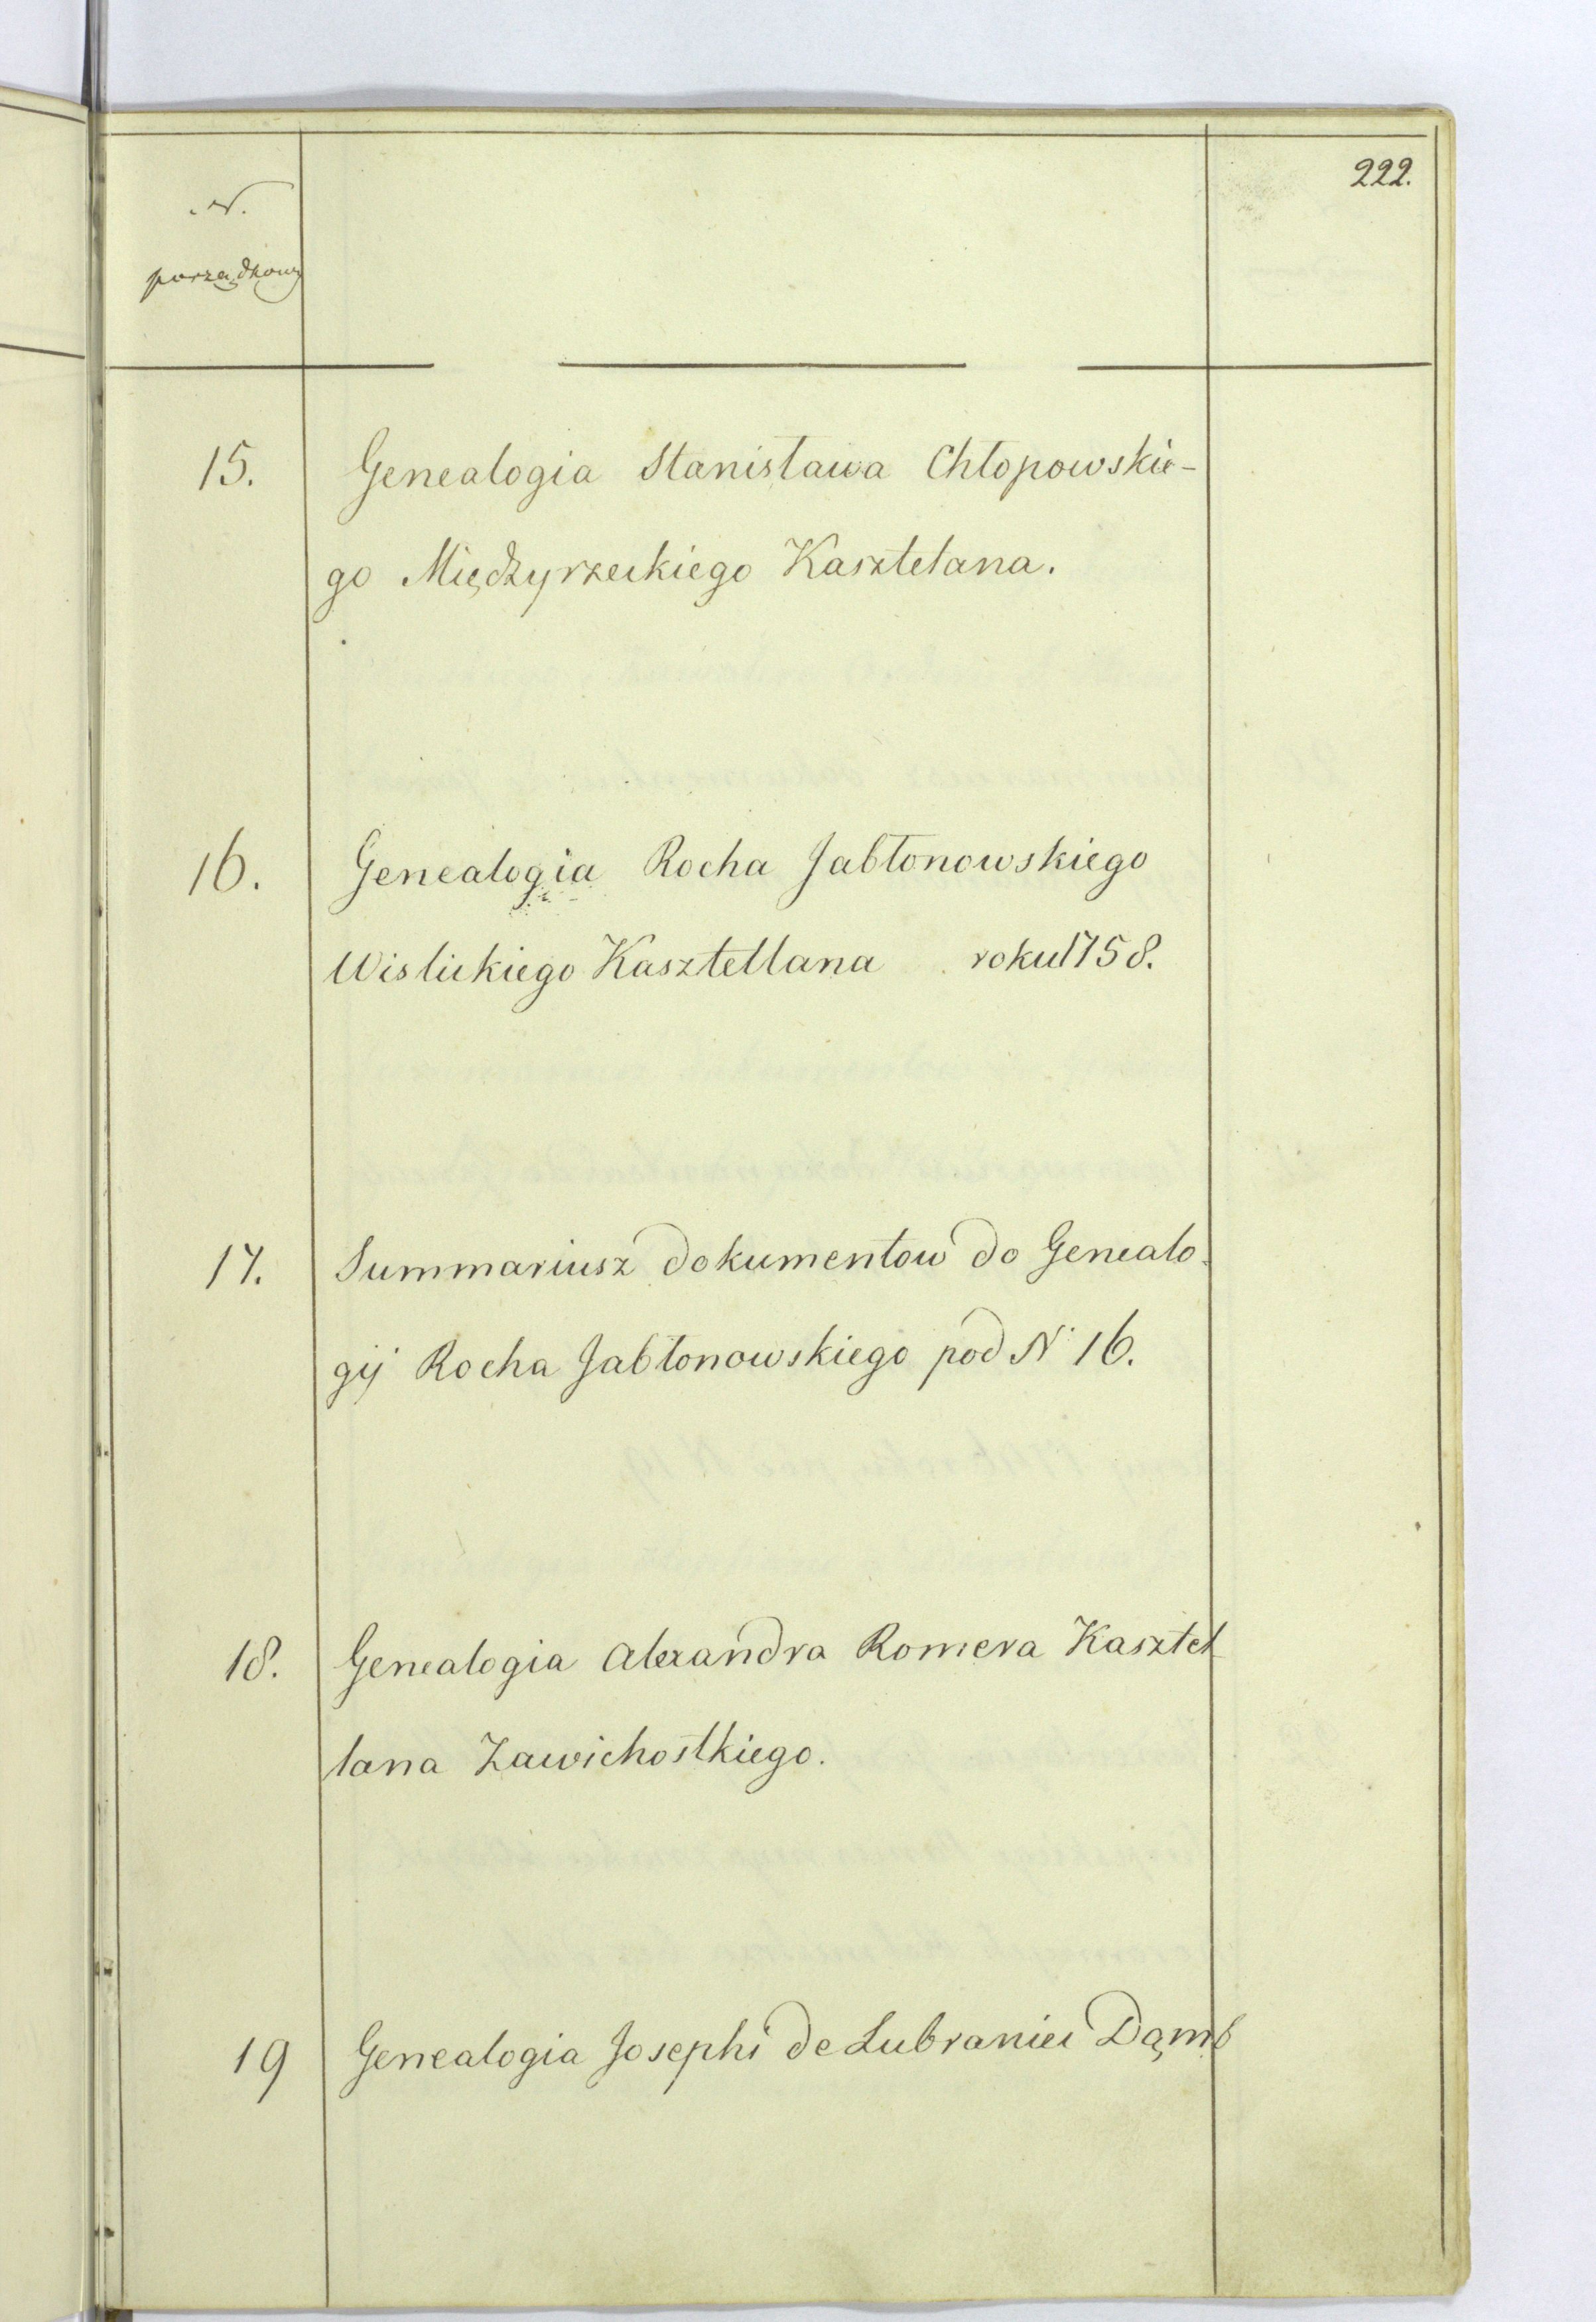 222.
N.
porządkowy
15. Genealogia Stanisława Chłopowskie-
go Międzyrzeckiego Kasztelana.
16. Genealogia Rocha Jabłonowskiego
Wislickiego Kasztellana roku 1758.
17. Summariusz dokumentow do Genealo-
gij Rocha Jabłonowskiego pod N 16.
18. Genealogia Alexandra Romera Kasztel-
lana Zawichostkiego.
19 Genealogia Josephi de Lubraniec Dąmb